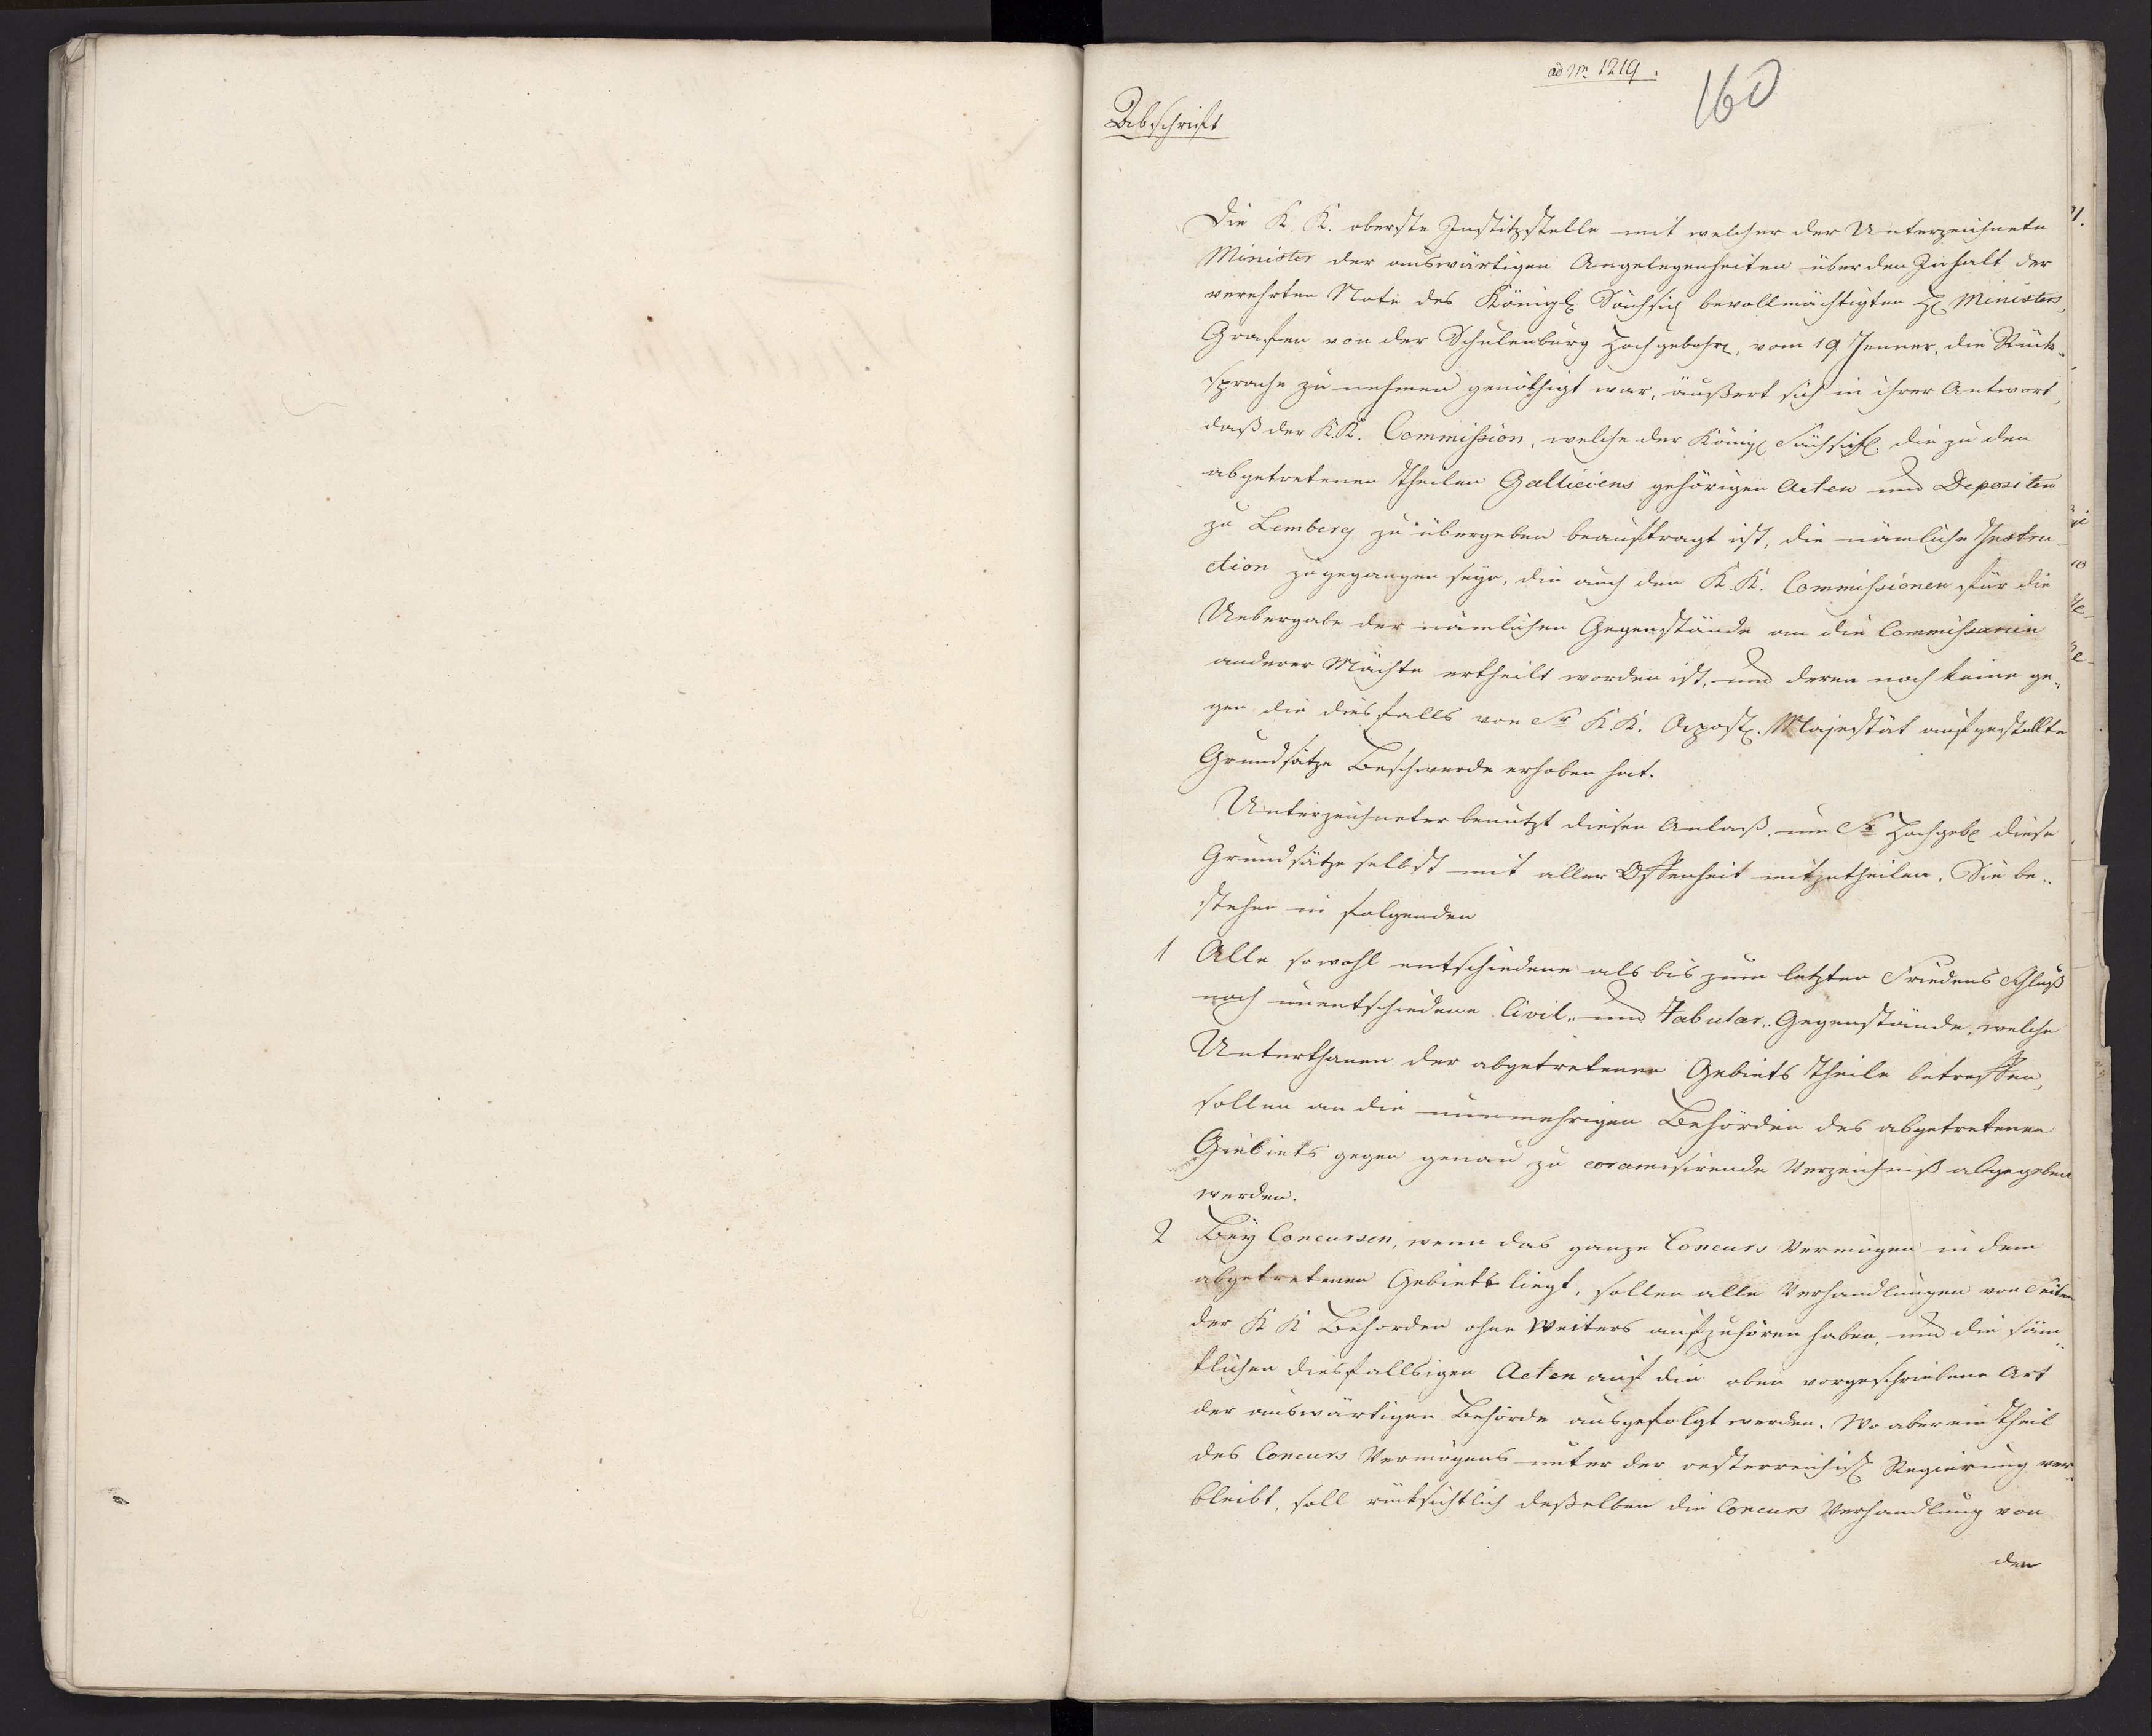 ad Nr. 1219.
160
Abschrift
Die K. K. oberste Justitzstelle mit welcher der Unterzeichnete
Minister der auswärtigen Angelegenheiten über den Inhalt der
verehrten Note des Königl Sächsisch bevollmächtigten H Ministers,
Grafen von der Schulenburg Hochgebohr, vom 19 Jenner, die Rück-
sprache zu nehmen genöthigt war, äußert sich in ihrer Antwort,
daß der K.K. Commission, welche der Königl Sächsisch die zu den
abgetretenen Theilen Galliciens gehörigen Acten und Depositen
zu Lemberg zu übergeben beauftragt ist, die nämliche Instru-
ction zugegangen seye, die auch den K.K. Commissionen für die
Uebergabe der nämlichen Gegenstände an die Commissarien
anderer Mächte ertheilt worden ist, und deren noch keine ge-
gen die diesfalls von Sr K.K. Apost. Majestät aufgestellte
Grundsätze Beschwerde erhoben hat.
Unterzeichneter benutzt diesen Anlaß, um Sr Hochgeb diese
Grundsätze selbst mit aller Offenheit mitzutheilen. Sie be-
stehen in folgenden
1 Alle sowohl entschiedene als bis zum letzten Friedens Schluß
noch unentschiedene Civil- und Tabular-Gegenstände, welche
Unterthanen der abgetretenen Gebiets Theile betreffen,
sollen an die nunmehrigen Behörden des abgetretenen
Giebiets gegen genau zu coramisirende Verzeichniß abgegeben
werden.
2 Bey Concursen, wenn das ganze Concurs Vermögen in dem
abgetretenen Gebiets liegt, sollen alle Verhandlungen von Seiten
der K K Behorden ohne Weiters aufzuhören haben, und die säm-
tlichen diesfallsigen Acten auf die oben vorgeschriebene Art
der auswärtigen Behörde ausgefolgt werden. Wo aber ein Theil
des Concurs Vermögens unter der oesterreichisch Regierung ver-
bleibt, soll rücksichtlich deßelben die Concurs Verhandlung von
den